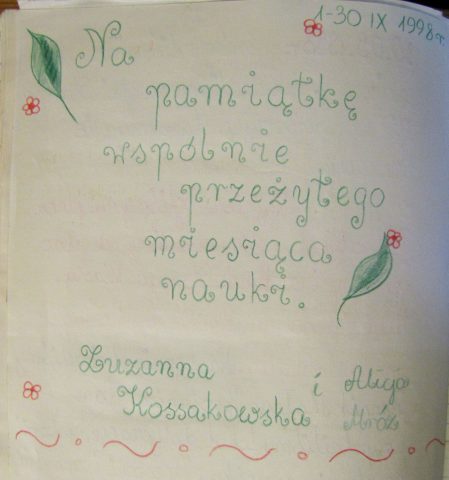 1-30 IX 1998r.
Na
pamiątkę
wspólnie
przeżytego
miesiąca
nauki.
Zuzanna
Kossakowska
i Alicja
Mróz